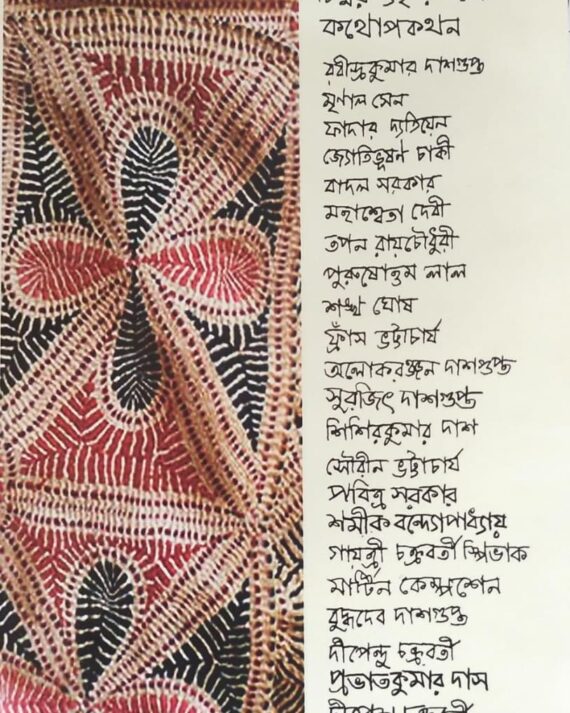 কথোপকথন
রবীন্দ্রকুমার দাশগুপ্ত
মৃণাল সেন
ফাদার দ্যতিয়েন
জ্যোতিভূষণ চাকী
বাদল সরকার
মহাশ্বেতা দেবী
তপন রায়চৌধুরী
পুরুষোত্তম লাল
শঙ্খ ঘোষ
ফ্রাঁস ভট্টাচার্য
অলোকরঞ্জন দাশগুপ্ত
সুরজিৎ দাশগুপ্ত
শিশিরকুমার দাশ
সৌরীন ভট্টাচার্য
পবিত্র সরকার
শমীক বন্দ্যোপাধ্যায়
গায়ত্রী চক্রবর্তী স্পিভাক
মার্টিন কেম্পশেন
বুদ্ধদেব দাশগুপ্ত
দীপেন্দু চক্রবর্তী
প্রভাতকুমার দাস